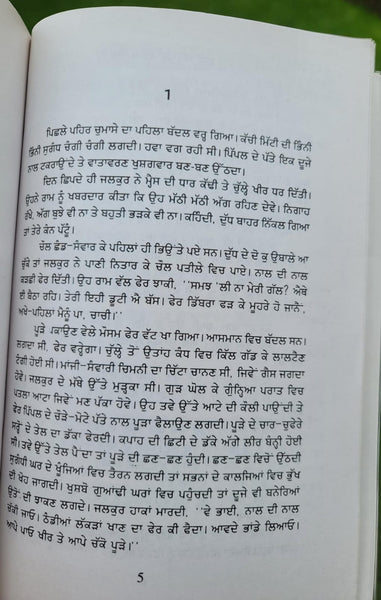 1
ਪਿਛਲੇ ਪਹਿਰ ਚੁਮਾਸੇ ਦਾ ਪਹਿਲਾ ਬੱਦਲ ਵਰ੍ਹ ਗਿਆ। ਕੱਚੀ ਮਿੱਟੀ ਦੀ ਭਿੰਨੀ
ਭਿੰਨੀ ਸੁਗੰਧ ਚੰਗੀ ਚੰਗੀ ਲਗਦੀ। ਹਵਾ ਵਗ ਰਹੀ ਸੀ। ਪਿੱਪਲ ਦੇ ਪੱਤੇ ਇਕ ਦੂਜੇ
ਨਾਲ ਟਕਰਾਉਂਦੇ ਤੇ ਵਾਤਾਵਰਣ ਖੁਸ਼ਗਵਾਰ ਬਣ-ਬਣ ਉੱਠਦਾ।
ਦਿਨ ਛਿਪਦੇ ਹੀ ਜਲਕੁਰ ਨੇ ਮ੍ਹੈਸ ਦੀ ਧਾਰ ਕੱਢੀ ਤੇ ਚੁੱਲ੍ਹੇ ਖੀਰ ਧਰ ਦਿੱਤੀ।
ਉਹਨੇ ਰਾਮ ਨੂੰ ਖਬਰਦਾਰ ਕੀਤਾ ਕਿ ਉਹ ਮੱਠੀ ਮੱਠੀ ਅੱਗ ਰਹਿਣ ਦੇਵੇ। ਨਿਗਾਹ
ਰੱਖੇ, ਅੱਗ ਬੁਝੇ ਵੀ ਨਾ ਤੇ ਬਹੁਤੀ ਭੜਕੇ ਵੀ ਨਾ। ਕਹਿੰਦੀ, ਦੁੱਧ ਬਾਹਰ ਨਿੱਕਲ ਗਿਆ
ਤਾਂ ਤੇਰੇ ਕੰਨ ਪੱਟੂੰ।
ਚੌਲ ਛੰਡ-ਸੰਵਾਰ ਕੇ ਪਹਿਲਾਂ ਹੀ ਭਿਉਂਤੇ ਪਏ ਸਨ। ਦੁੱਧ ਦੇ ਦੋ ਕੁ ਉਬਾਲੇ ਆ
ਚੁੱਕੇ ਤਾਂ ਜਲਕੁਰ ਨੇ ਪਾਣੀ ਨਿਤਾਰ ਕੇ ਚੌਲ ਪਤੀਲੇ ਵਿਚ ਪਾਏ। ਨਾਲ ਦੀ ਨਾਲ
ਕੜਛੀ ਫੇਰ ਦਿੱਤੀ। ਉਹ ਰਾਮ ਵੱਲ ਫੇਰ ਝਾਕੀ, "ਸਮਝ 'ਲੀ ਨਾ ਮੇਰੀ ਗੱਲ? ਐਥੇ
ਈ ਬੈਠਾ ਰਹਿ। ਤੇਰੀ ਇਹੀ ਡੂਟੀ ਐ ਬੱਸ। ਫੇਰ ਡਿੱਬਰਾ ਫੜ ਕੇ ਮੂਹਰੇ ਹੋ ਜਾਨੈਂ।
ਅਖੇ-ਪਹਿਲਾਂ ਮੈਨੂੰ ਪਾ, ਚਾਚੀ।"
ਪੂੜੇ ਪਕਾਉਣ ਵੇਲੇ ਮੌਸਮ ਫੇਰ ਵੱਟ ਖਾ ਗਿਆ। ਆਸਮਾਨ ਵਿਚ ਬੱਦਲ ਸਨ।
ਲਗਦਾ ਸੀ, ਫੇਰ ਵਰ੍ਹੇਗਾ। ਚੁੱਲ੍ਹੇ ਤੋਂ ਉਤਾਂਹ ਕੰਧ ਵਿਚ ਕਿੱਲ ਗੱਡ ਕੇ ਲਾਲਟੈਣ
ਟੰਗੀ ਹੋਈ ਸੀ। ਮਾਂਜੀ-ਸੰਵਾਰੀ ਚਿਮਨੀ ਦਾ ਚਿੱਟਾ ਚਾਨਣ ਸੀ, ਜਿਵੇਂ ਗੈਸ ਜਗਦਾ
ਹੋਵੇ। ਜਲਕੁਰ ਦੇ ਮੱਥੇ ਉੱਤੇ ਮੁੜ੍ਹਕਾ ਸੀ। ਗੁੜ ਘੋਲ ਕੇ ਗੁੰਨ੍ਹਿਆ ਪਰਾਤ ਵਿਚ
ਪਤਲਾ ਆਟਾ ਜਿਵੇਂ ਮਣ ਪੱਕਾ ਹੋਵੇ। ਉਹ ਤਵੇ ਉੱਤੇ ਆਟੇ ਦੀ ਕੌਲੀ ਪਾਉਂਦੀ ਤੇ
ਫੇਰ ਪਿੱਪਲ ਦੇ ਚੌੜੇ-ਮੋਟੇ ਪੱਤੇ ਨਾਲ ਪੂੜਾ ਫੈਲਾਉਣ ਲਗਦੀ। ਪੂੜੇ ਦੇ ਚਾਰ-ਚੁਫੇਰੇ
ਸਰ੍ਹੋਂ ਦੇ ਤੇਲ ਦਾ ਡੱਕਾ ਫੇਰਦੀ। ਕਪਾਹ ਦੀ ਛਿਟੀ ਦੇ ਡੱਕੇ ਅੱਗੇ ਲੀਰ ਬੰਨ੍ਹੀ ਹੋਈ
ਸੀ। ਤਵੇ ਉੱਤੇ ਤੇਲ ਪੈਂਦਾ ਤਾਂ ਪੂੜੇ ਦੀ ਛਣ-ਛਣ ਹੁੰਦੀ। ਛਣ-ਛਣ ਵਿਚੋਂ ਉੱਠਦੀ
ਸੁਗੰਧੀ ਘਰ ਦੇ ਖੂੰਜਿਆਂ ਵਿਚ ਤੈਰਨ ਲਗਦੀ ਤਾਂ ਸਭਨਾਂ ਦੇ ਕਾਲਜਿਆਂ ਵਿਚ ਭੁੱਖ
ਦੀ ਖੋਹ ਜਾਗਦੀ। ਖੁਸ਼ਬੋ ਗੁਆਂਢੀ ਘਰਾਂ ਵਿਚ ਪਹੁੰਚਦੀ ਤਾਂ ਦੂਜੇ ਵੀ ਬਨੇਰਿਆਂ
ਉੱਤੋਂ ਦੀ ਝਾਕਣ ਲਗਦੇ। ਜਲਕੁਰ ਹਾਕਾਂ ਮਾਰਦੀ, "ਵੇ ਭਾਈ, ਨਾਲ ਦੀ ਨਾਲ
ਚੱਕੀ ਜਾਓ। ਠੰਡੀਆਂ ਲੱਕੜਾਂ ਖਾਣ ਦਾ ਫੇਰ ਕੀ ਫੈਦਾ। ਆਵਦੇ ਭਾਂਡੇ ਲਿਆਓ।
ਆਪੇ ਪਾਓ ਖੀਰ ਤੇ ਆਪੇ ਚੱਕੋ ਪੂੜੇ।"
5